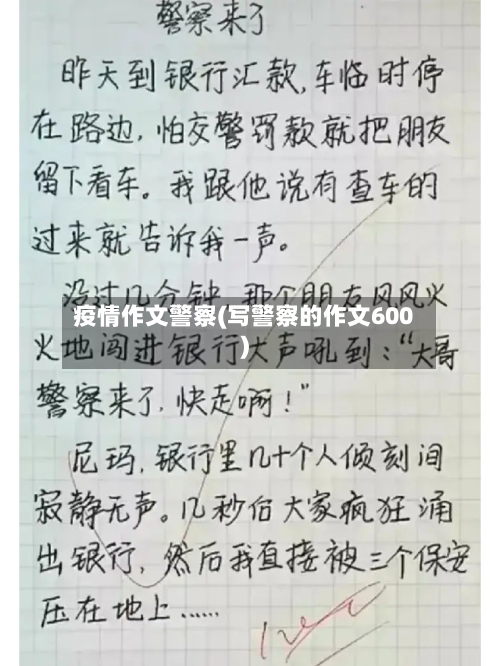 警察来了
昨天到银行汇款,车临时停
在路边,怕交警罚款就把朋友
留下看车。我跟他说有查车的
过来就告诉我一声。
没过几分钟 那个朋友风风火
疫情作文警察(写警察的作文600
)
火地闯进银行大声吼到:“大哥
警察来了,快走啊!”
尼玛,银行里几十个人倾刻间
寂静无声。几秒后大家疯狂涌
出银行,然后我直接被三个保安
压在地上……